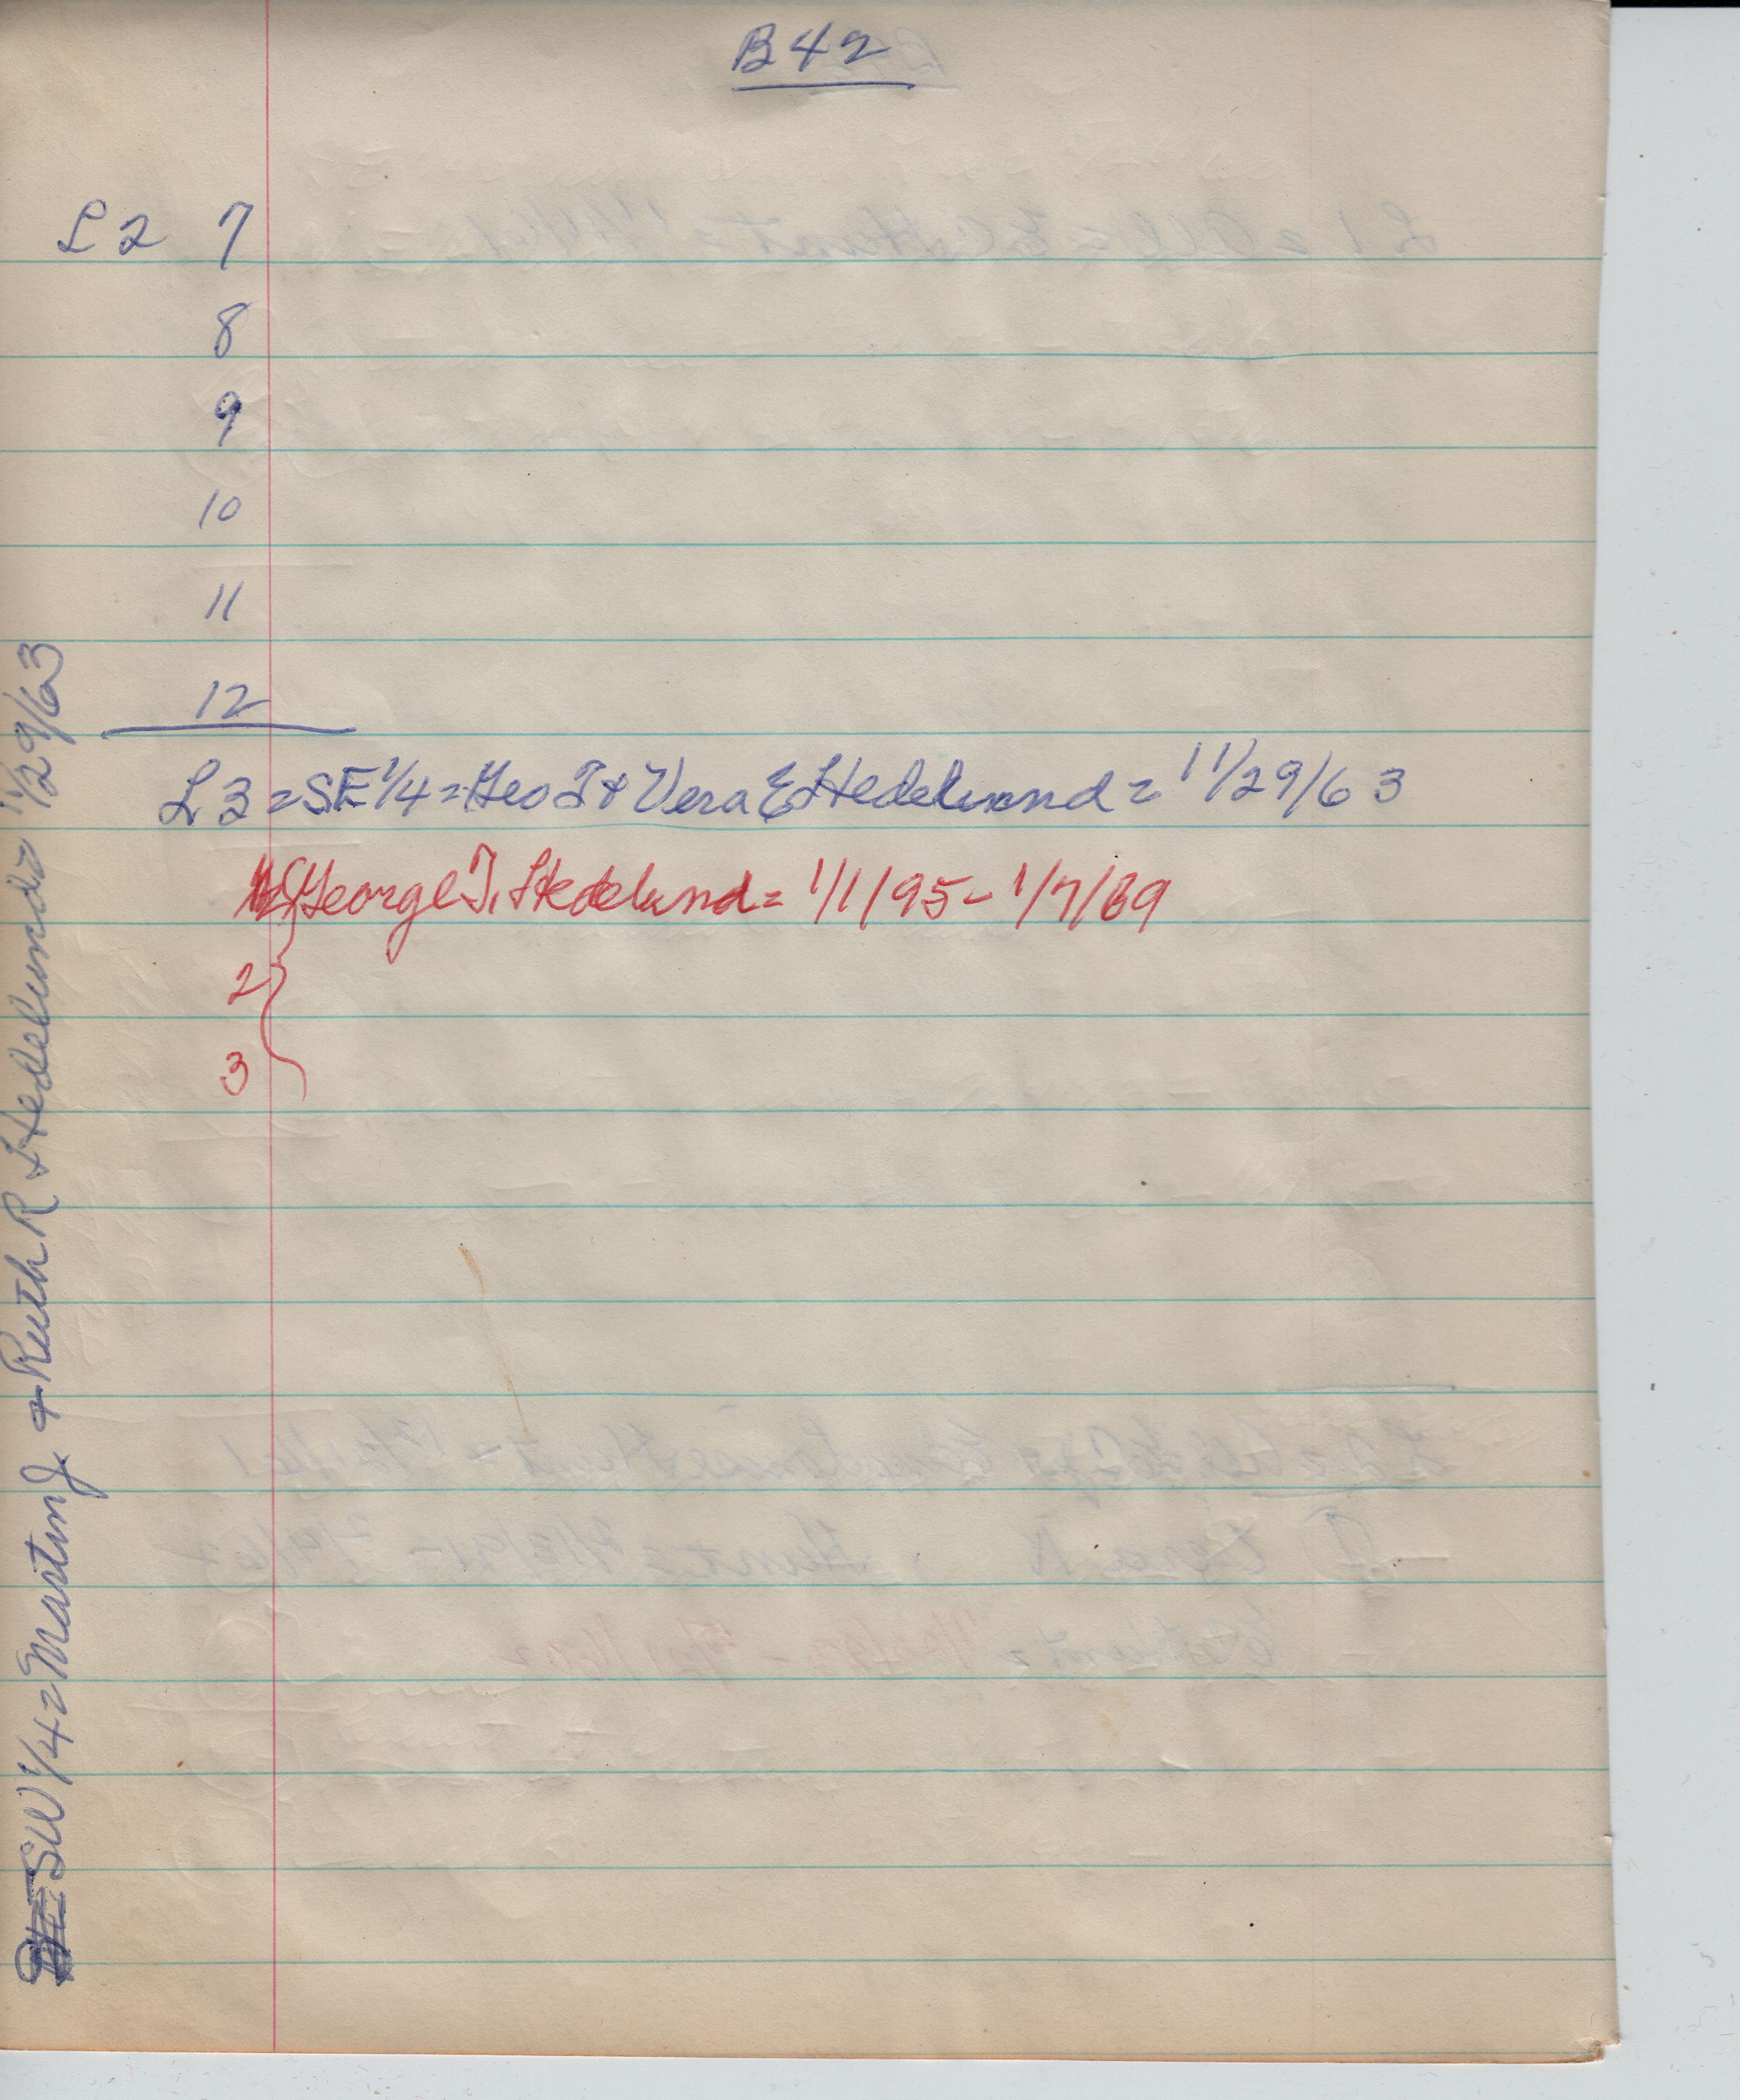 B42
L2 7
8
9
10
11
12
L3 = SE 1/4 = Geo T + Vera E Hedelund = 11/29/63
George T. Hedelund = 1/1/95 - 1/7/69
2
3
SW 1/4 = Martin J + Ruth R Hedelund = 11/29/63